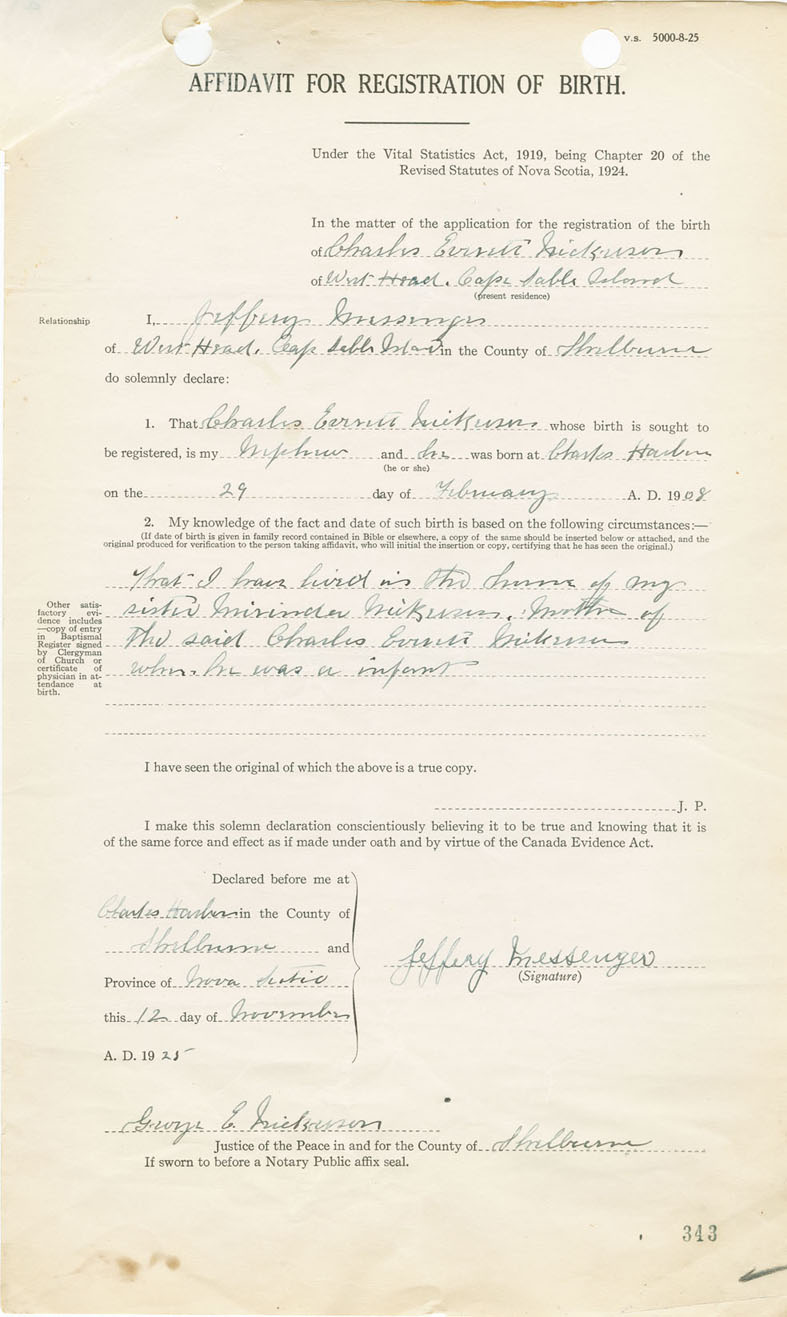 v.s. 5000-8-25
AFFIDAVIT FOR REGISTRATION OF BIRTH.
Under the Vital Statistics Act, 1919, being Chapter 20 of the
Revised Statutes of Nova Scotia, 1924.
In the matter of the application for the registration of the birth
of Charles Everett Nickerson
of West Head. Cape Sable Island
(present residence)
Relationship
I, Jeffery Messenger
of West Head. Cap Sable Island in the County of Shelburne
do solemnly declare:
1. That Charles Everett Nickerson whose birth is sought to
be registered, is my Nephew and he was born at Clarks Harbor
(he or she)
on the 29 day of February A. D. 1908
2. My knowledge of the fact and date of such birth is based on the following circumstances:—
(If date of birth is given in family record contained in Bible or elsewhere, a copy of the same should be inserted below or attached, and the
original produced for verification to the person taking affidavit, who will initial the insertion or copy, certifying that he has seen the original.)
That I have lived in the home of my
sister Mirinda Nickerson, Mother of
the said Charles Everett Nickerson
when he was a infant
Other satis-
factory evi-
dence includes
—copy of entry
in Baptismal
Register signed
by Clergyman
of Church or
certificate of
physician in at-
tendance at
birth.
I have seen the original of which the above is a true copy.
J. P.
I make this solemn declaration conscientiously believing it to be true and knowing that it is
of the same force and effect as if made under oath and by virtue of the Canada Evidence Act.
Declared before me at
Clarks Harbor in the County of
Shelburne and
Province of Nova Scotia
this 12 day of November
A. D. 1925
Jeffery Messenger
(Signature)
George E. Nickerson
Justice of the Peace in and for the County of Shelburne
If sworn to before a Notary Public affix seal.
343